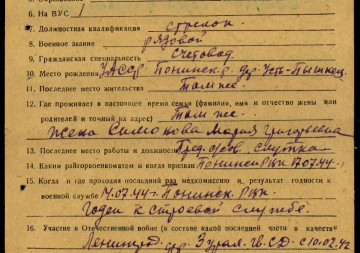 6. На ВУС 1
7. Должностная квалификация стрелок
8. Военное звание рядовой
9. Гражданская специальность Счетовод
10. Место рождения УАССР Понинск. р. дер. Усть-Пышкец
11. Последнее место жительства Там же
12. Где проживает в настоящее время семья (фамилия, имя и отчество жены или
родителей и точный на адрес) Там же.
Жена Симонова Мария Григорьевна
13. Последнее место работы и должность
14. Каким райгорвоенкоматом и когда призван Понинск РВК 17.07.44 г.
15. Когда и где проходил последний раз медкомиссию и результат годности к
военной службе 14.07.44 г. Понинск. РВК.
Годен к строевой службе.
16. Участие в Отечественной войне (в составе какой последней части, в качестве
Ленингр. фр. 3 гв. СД с 10.02.42